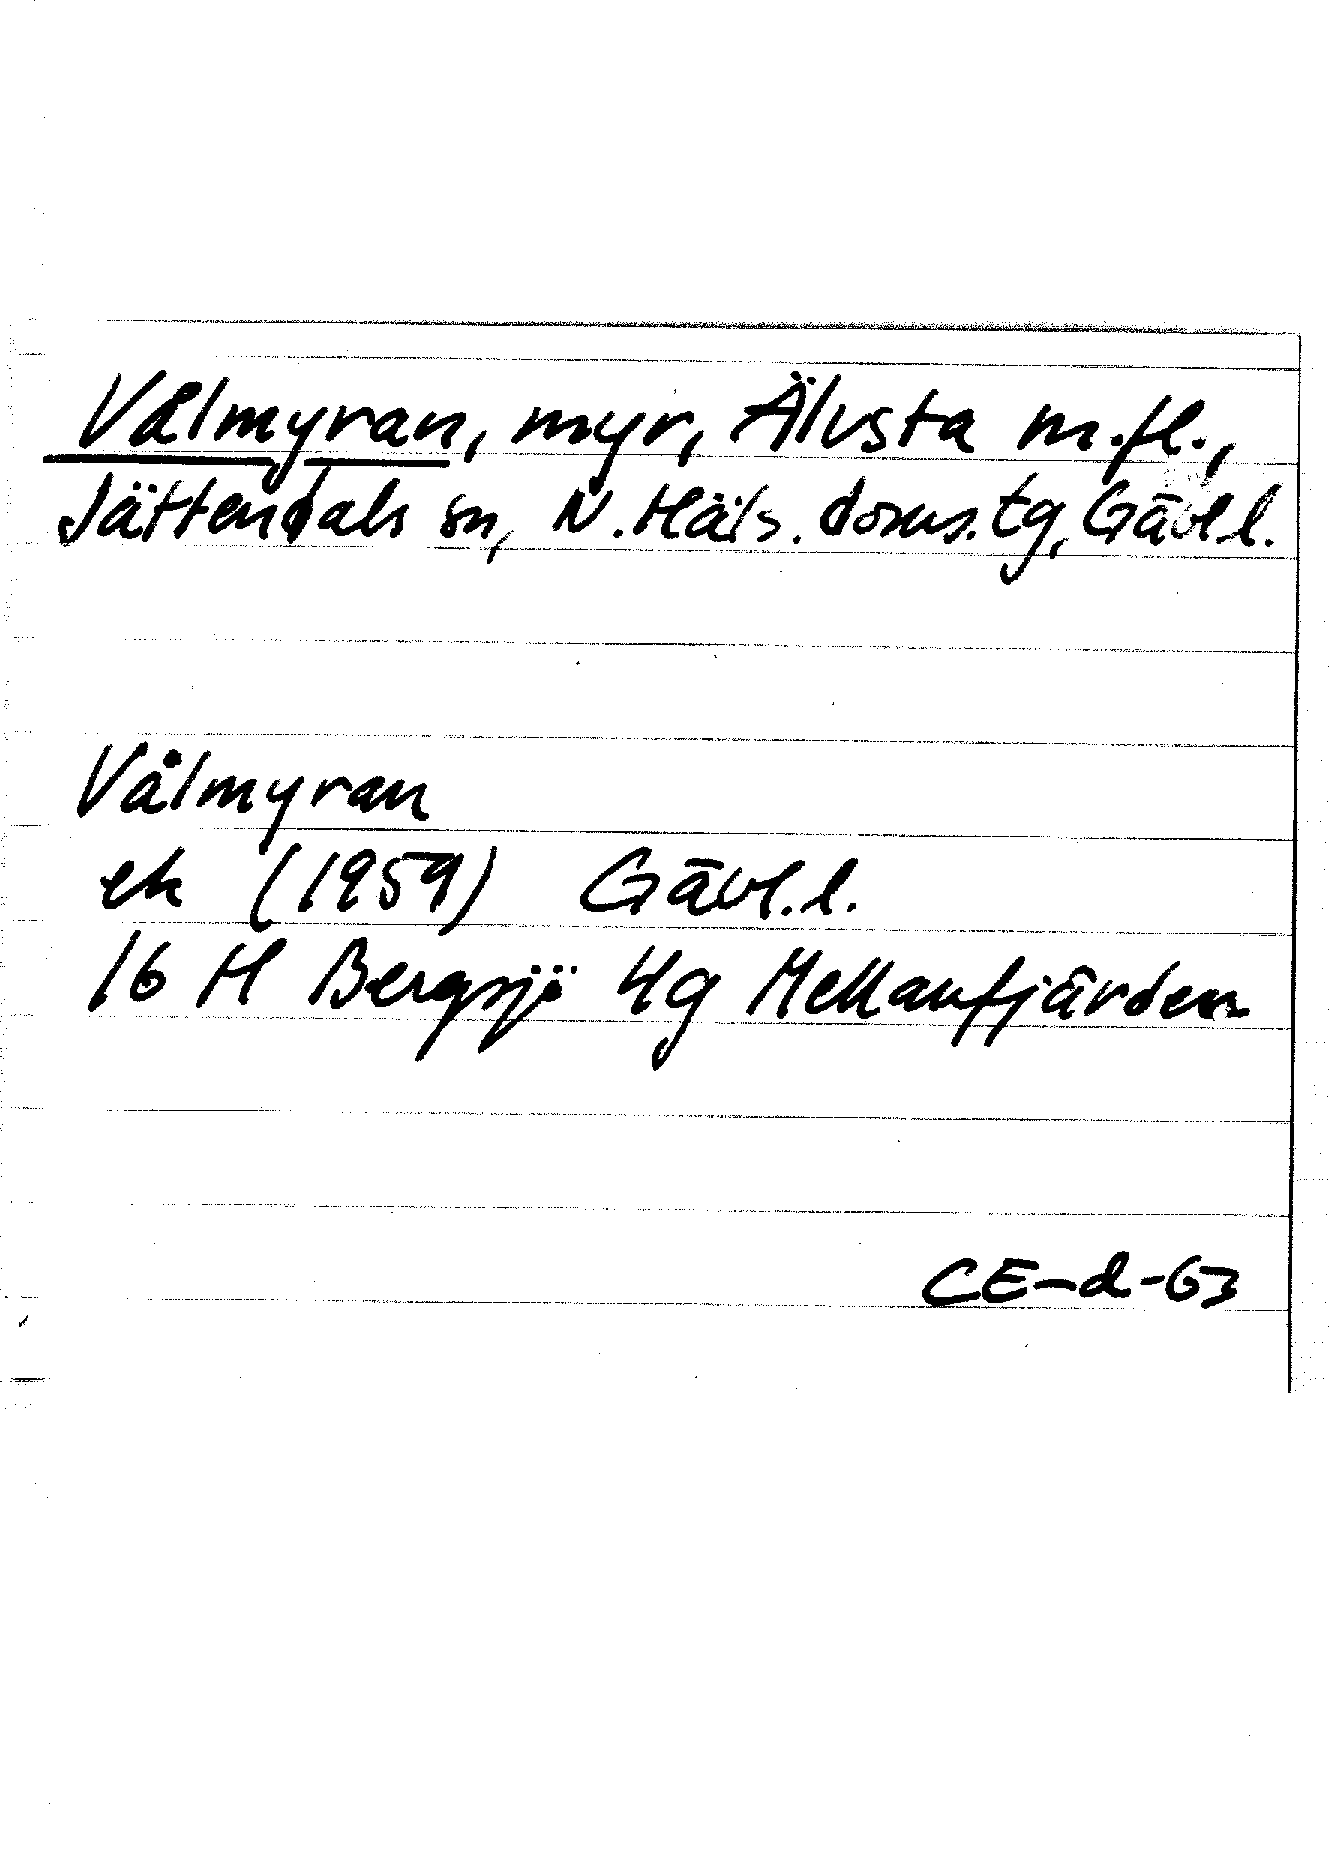 Vålmyran, myr, Älvsta m.fl.,
Jättendals sn, N. Häls. doms. tg, Gävl.l.
Vålmyran
ek (1959) Gävl.l.
16 H Bergsjö 4g Mellanfjärden
CE-d-63